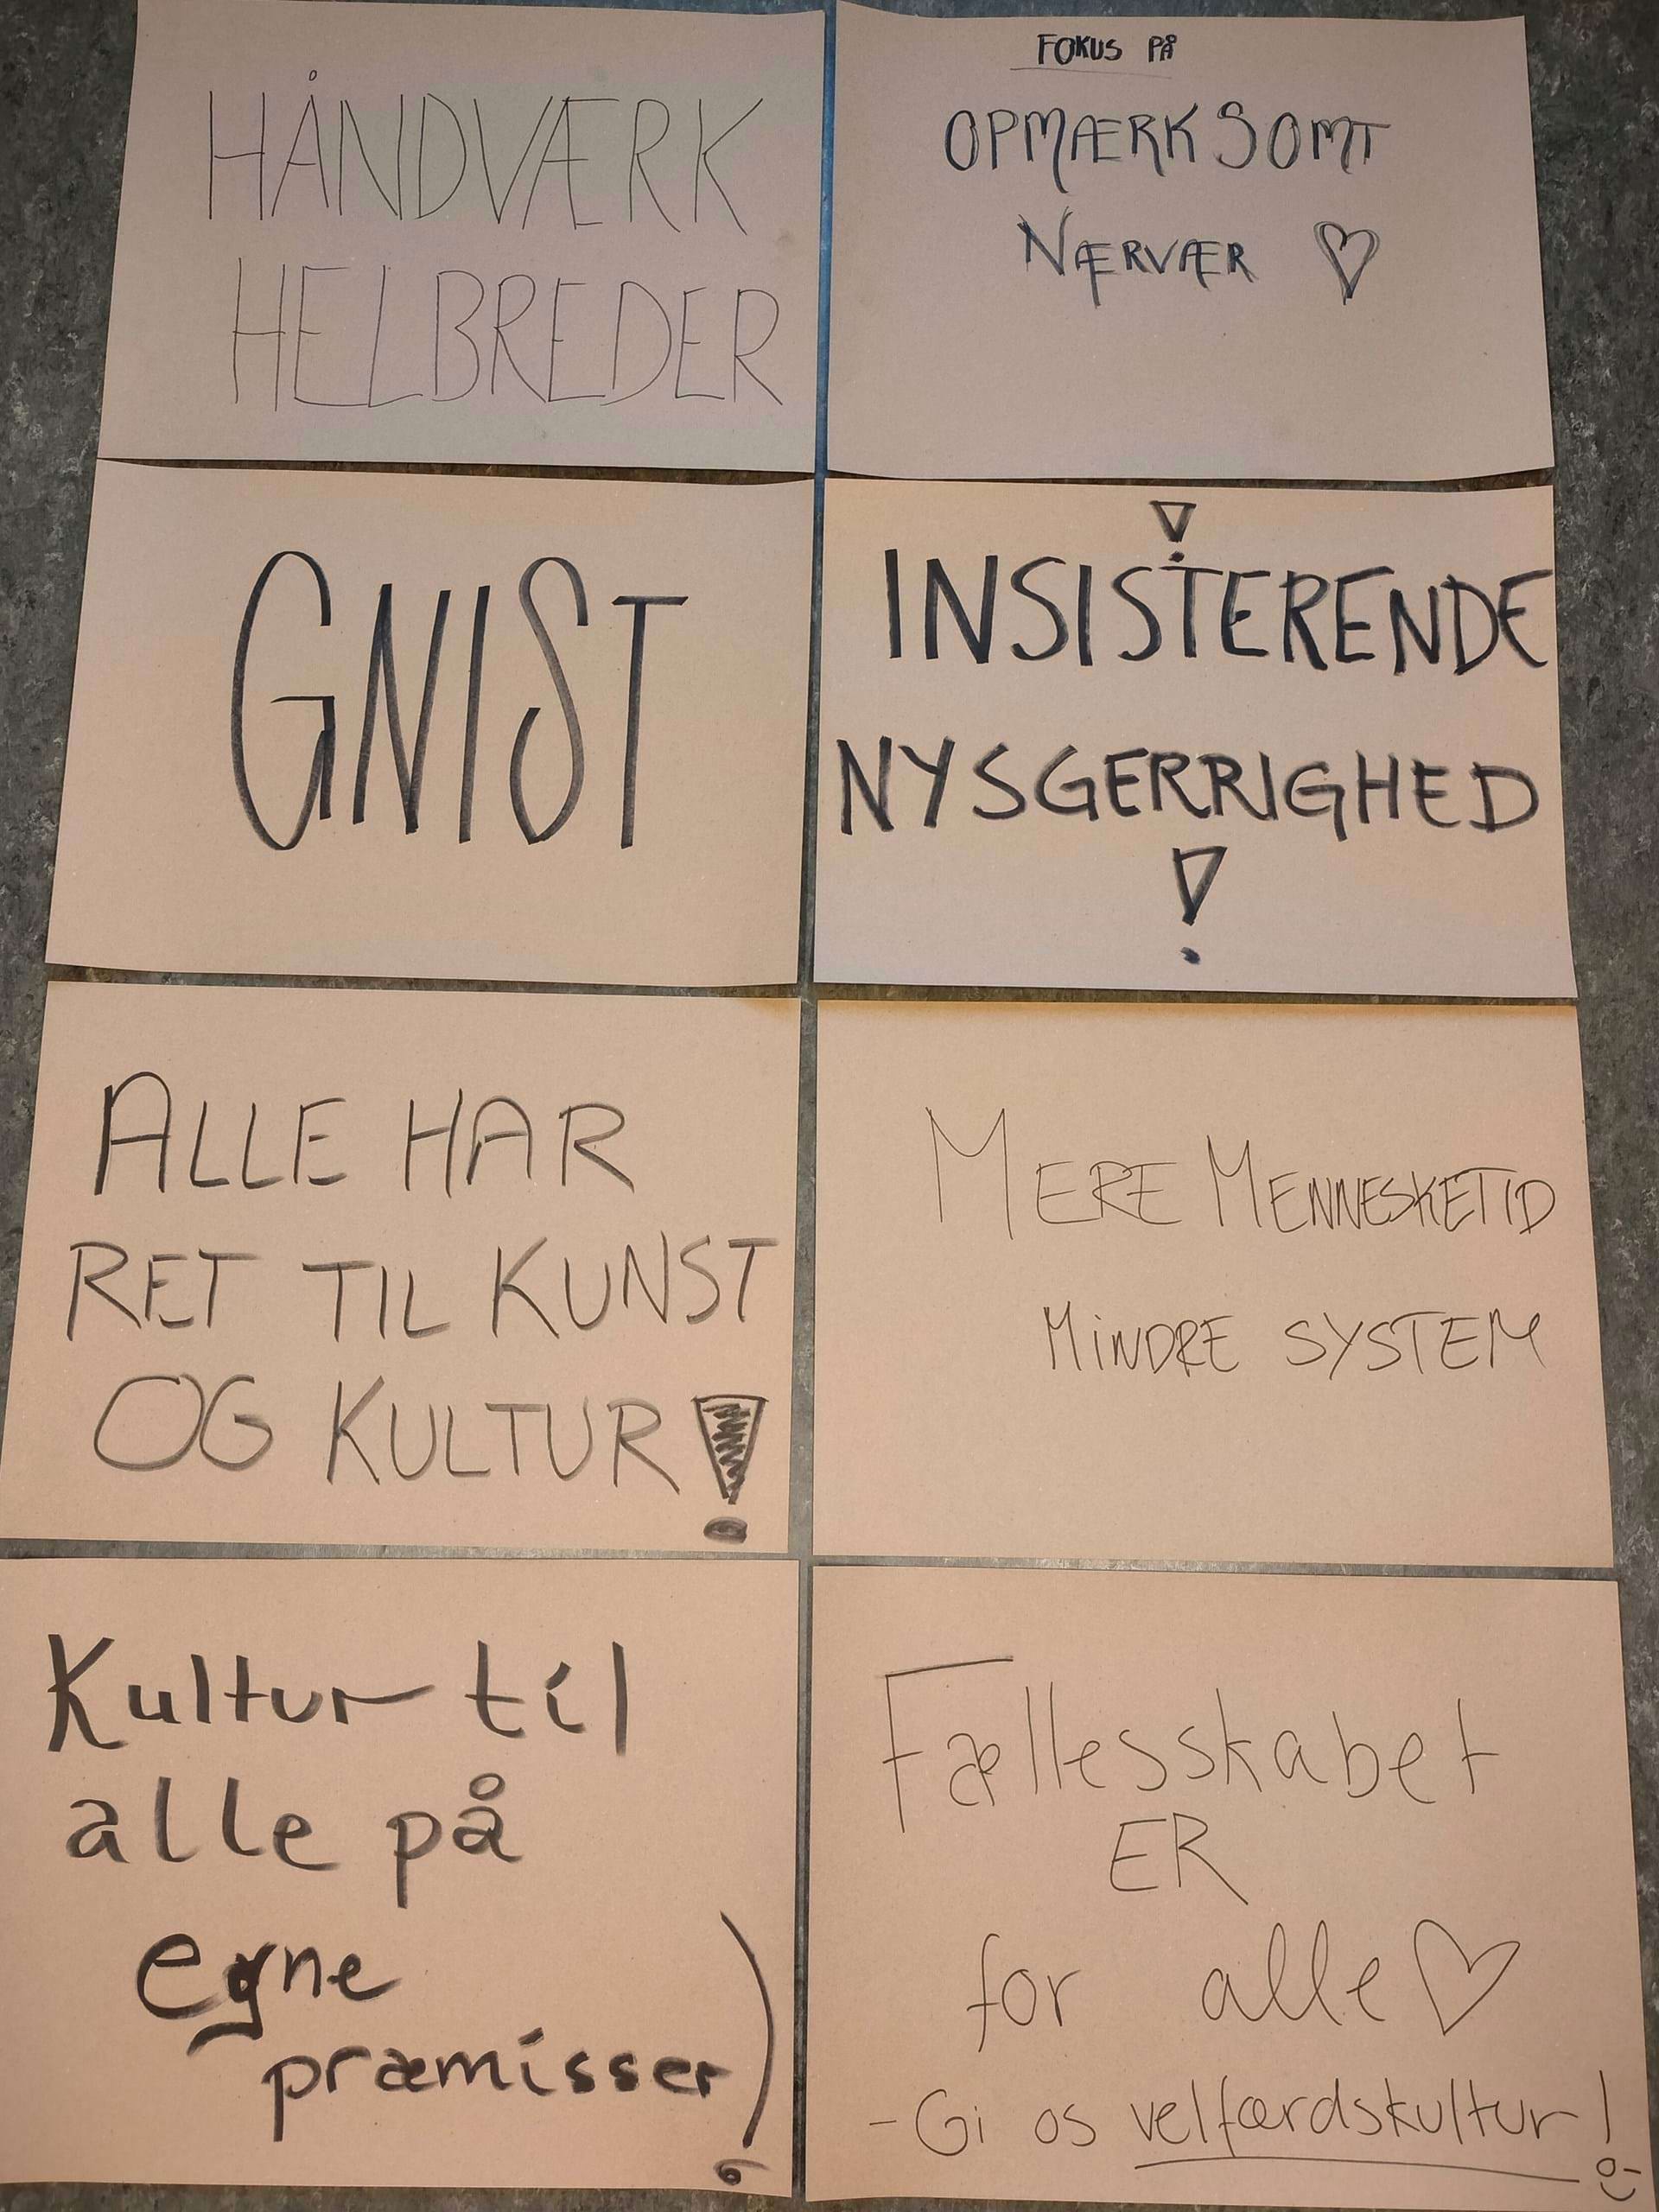 HÅNDVÆRK
HELBREDER
FOKUS PÅ
OPMÆRKSOMT
NÆRVÆR ♡
GNIST
INSISTERENDE
NYSGERRIGHED
!
ALLE HAR
RET TIL KUNST
OG KULTUR!
MERE MENNESKETID
MINDRE SYSTEM
Kultur til
alle på
egne
præmisser!
Fællesskabet
ER
for alle ♡
-Gi os velfærdskultur! :)